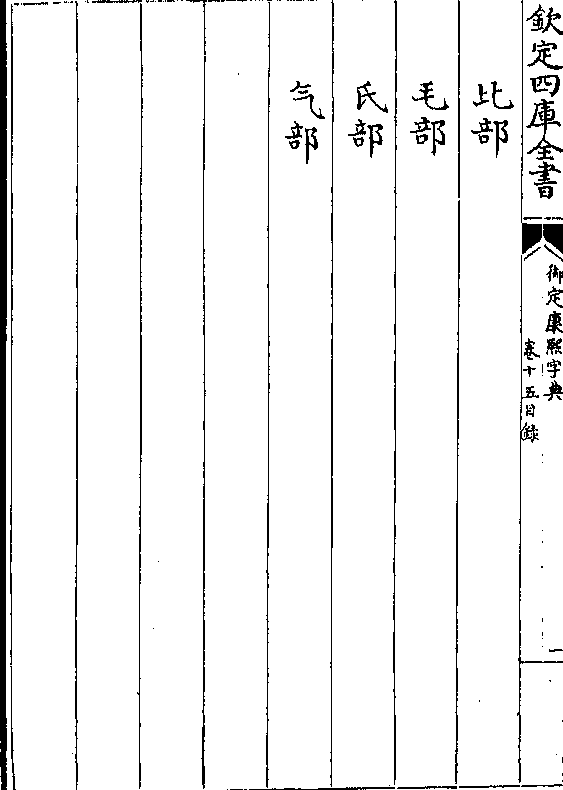 欽定四庫全書
御定康熙字典
卷十五目錄
一
比部
毛部
氏部
气部